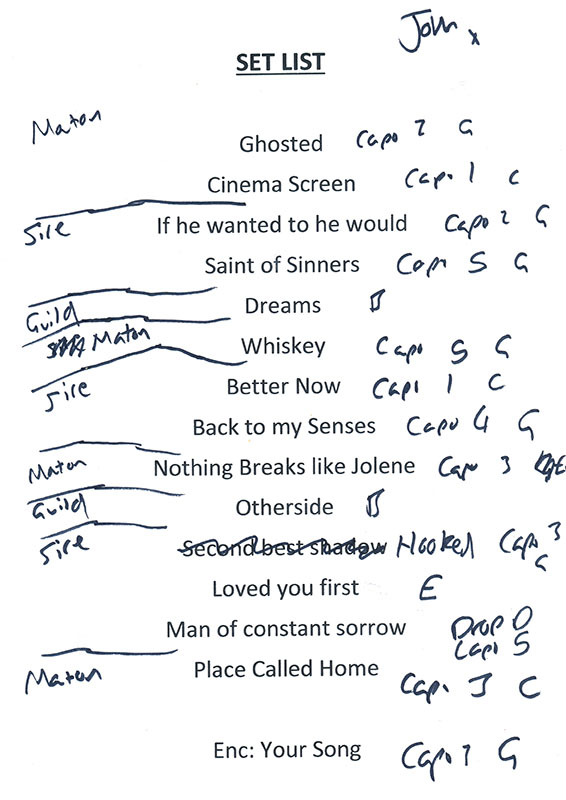 John x
SET LIST
Maton
Ghosted Capo 2 G
Cinema Screen Capo 1 C
Sire If he wanted to he would Capo 2 G
Saint of Sinners Capo 5 G
Guild Dreams
Maton Whiskey Capo 5 G
Sire Better Now Capo 1 C
Back to my Senses Capo 4 G
Maton Nothing Breaks like Jolene Capo 3
Guild Otherside
Sire Second best shadow Hooked Capo 3
G
Loved you first E
Man of constant sorrow Drop D
Capo 5
Maton Place Called Home Capo 3 C
Enc: Your Song Capo G